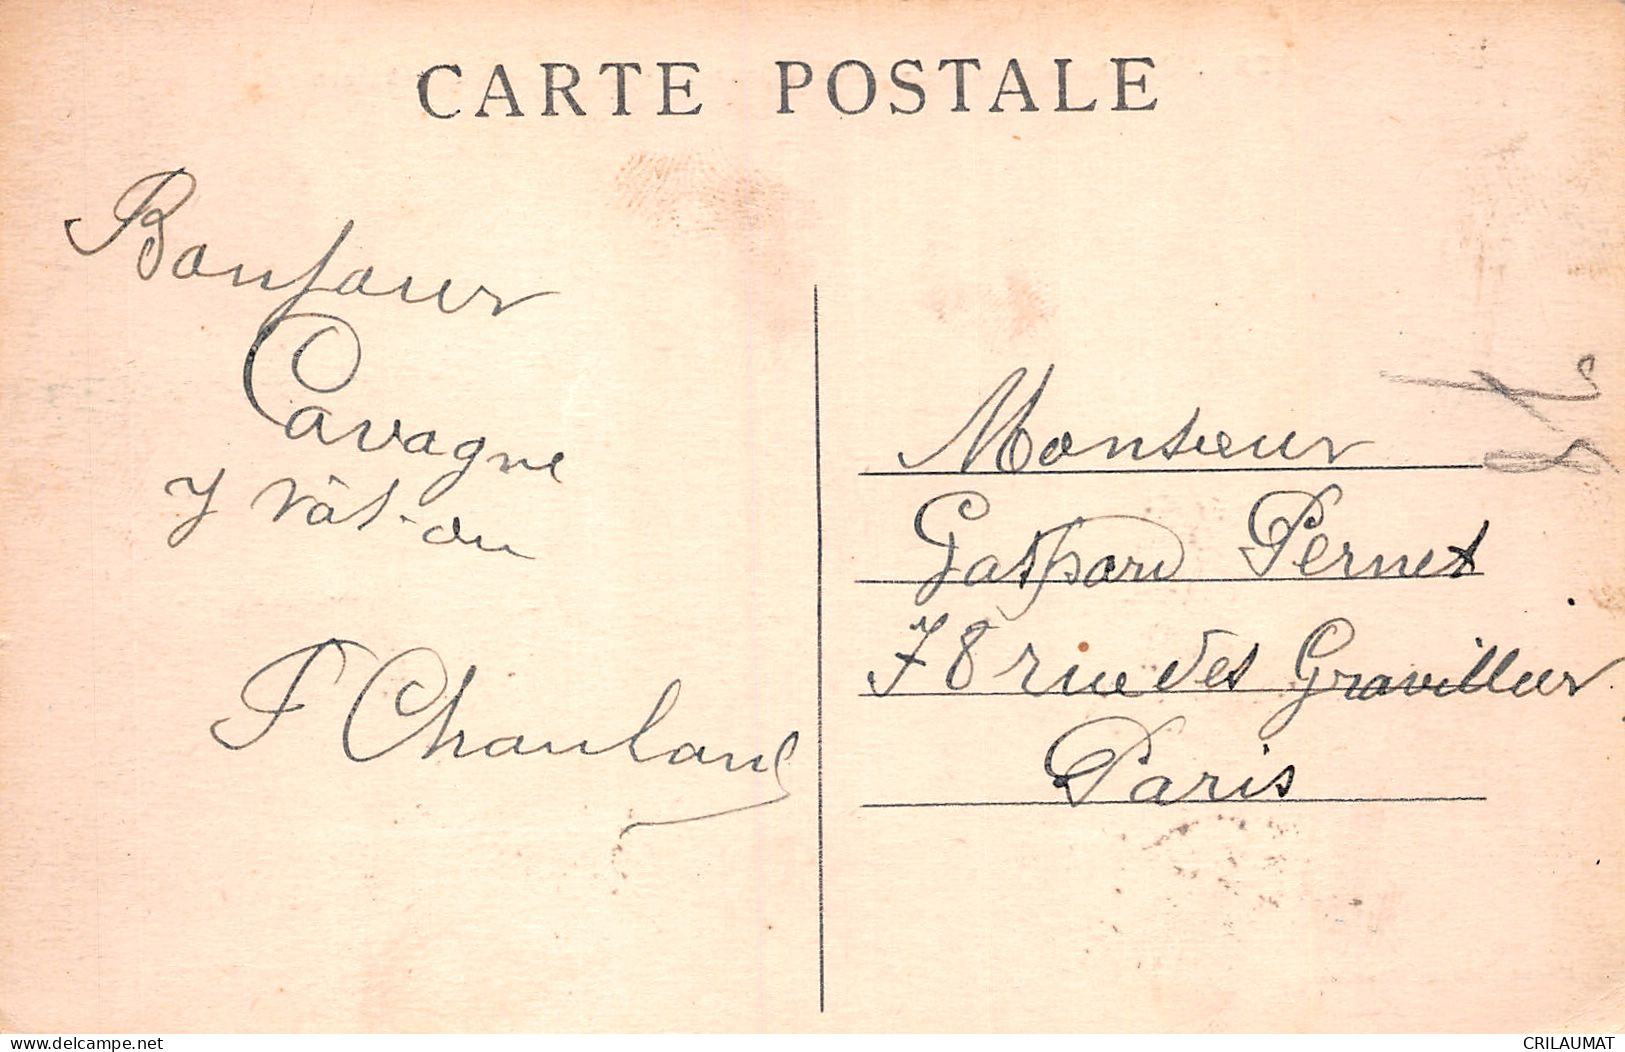 CARTE POSTALE
Bonjour
Cavagne
F Chauland
Monsieur
Gaspard Pernet
78 rue des Gravillier
Paris
www.delcampe.net
CRILAUMAT